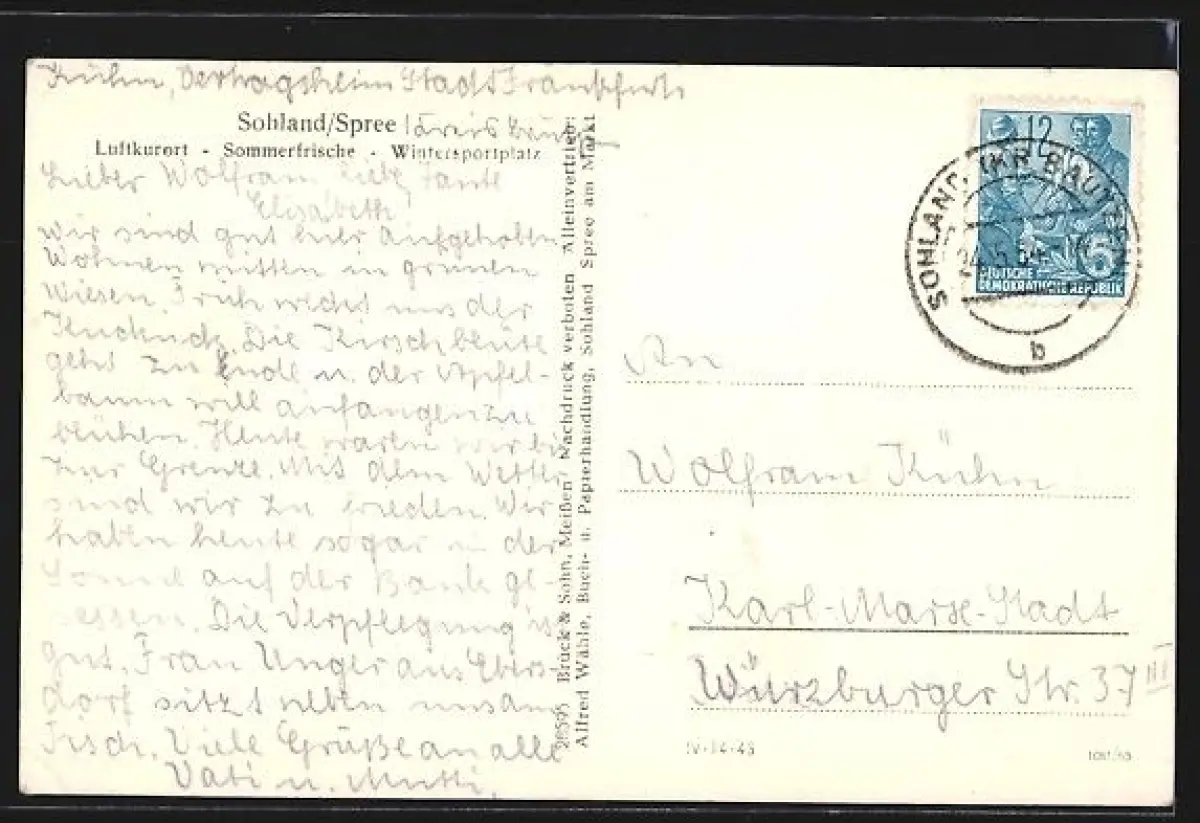 Kühn, Vertragsheim Stadt Frankfurt
Sohland/Spree Kreis
Luftkurort - Sommerfrische - Wintersportplatz
Lieber Wolfram, liebe Tante
Elisabeth!
Wir sind gut hier aufgehoben
Wohnen mitten in grünen
Wiesen. Früh weckt uns der
Kuckuck. Die Kirschblüte
geht zu Ende u. der Apfel-
baum will anfangen zu
blühen. Heute waren wir bis
zur Grenze. Mit dem Wetter
sind wir zufrieden. Wir
haben heute sogar in der
Sonne auf der Bank ge-
sessen. Die Verpflegung ist
gut. Frau Unger aus Ebers-
dorf sitzt neben uns am
Tisch. Viele Grüße an alle
Vati u. Mutti.
26595 Brück & Sohn, Meißen Nachdruck verboten Alleinvertrieb:
Alfred Wähle, Buch- u. Papierhandlung, Sohland Spree am Markt
12
6
DEUTSCHE
DEMOKRATISCHE REPUBLIK
SOHLAND (KR BAUTZEN)
b
An
Wolfram Kühn
Karl-Marx-Stadt
Würzburger Str. 37 III
IV-14-48